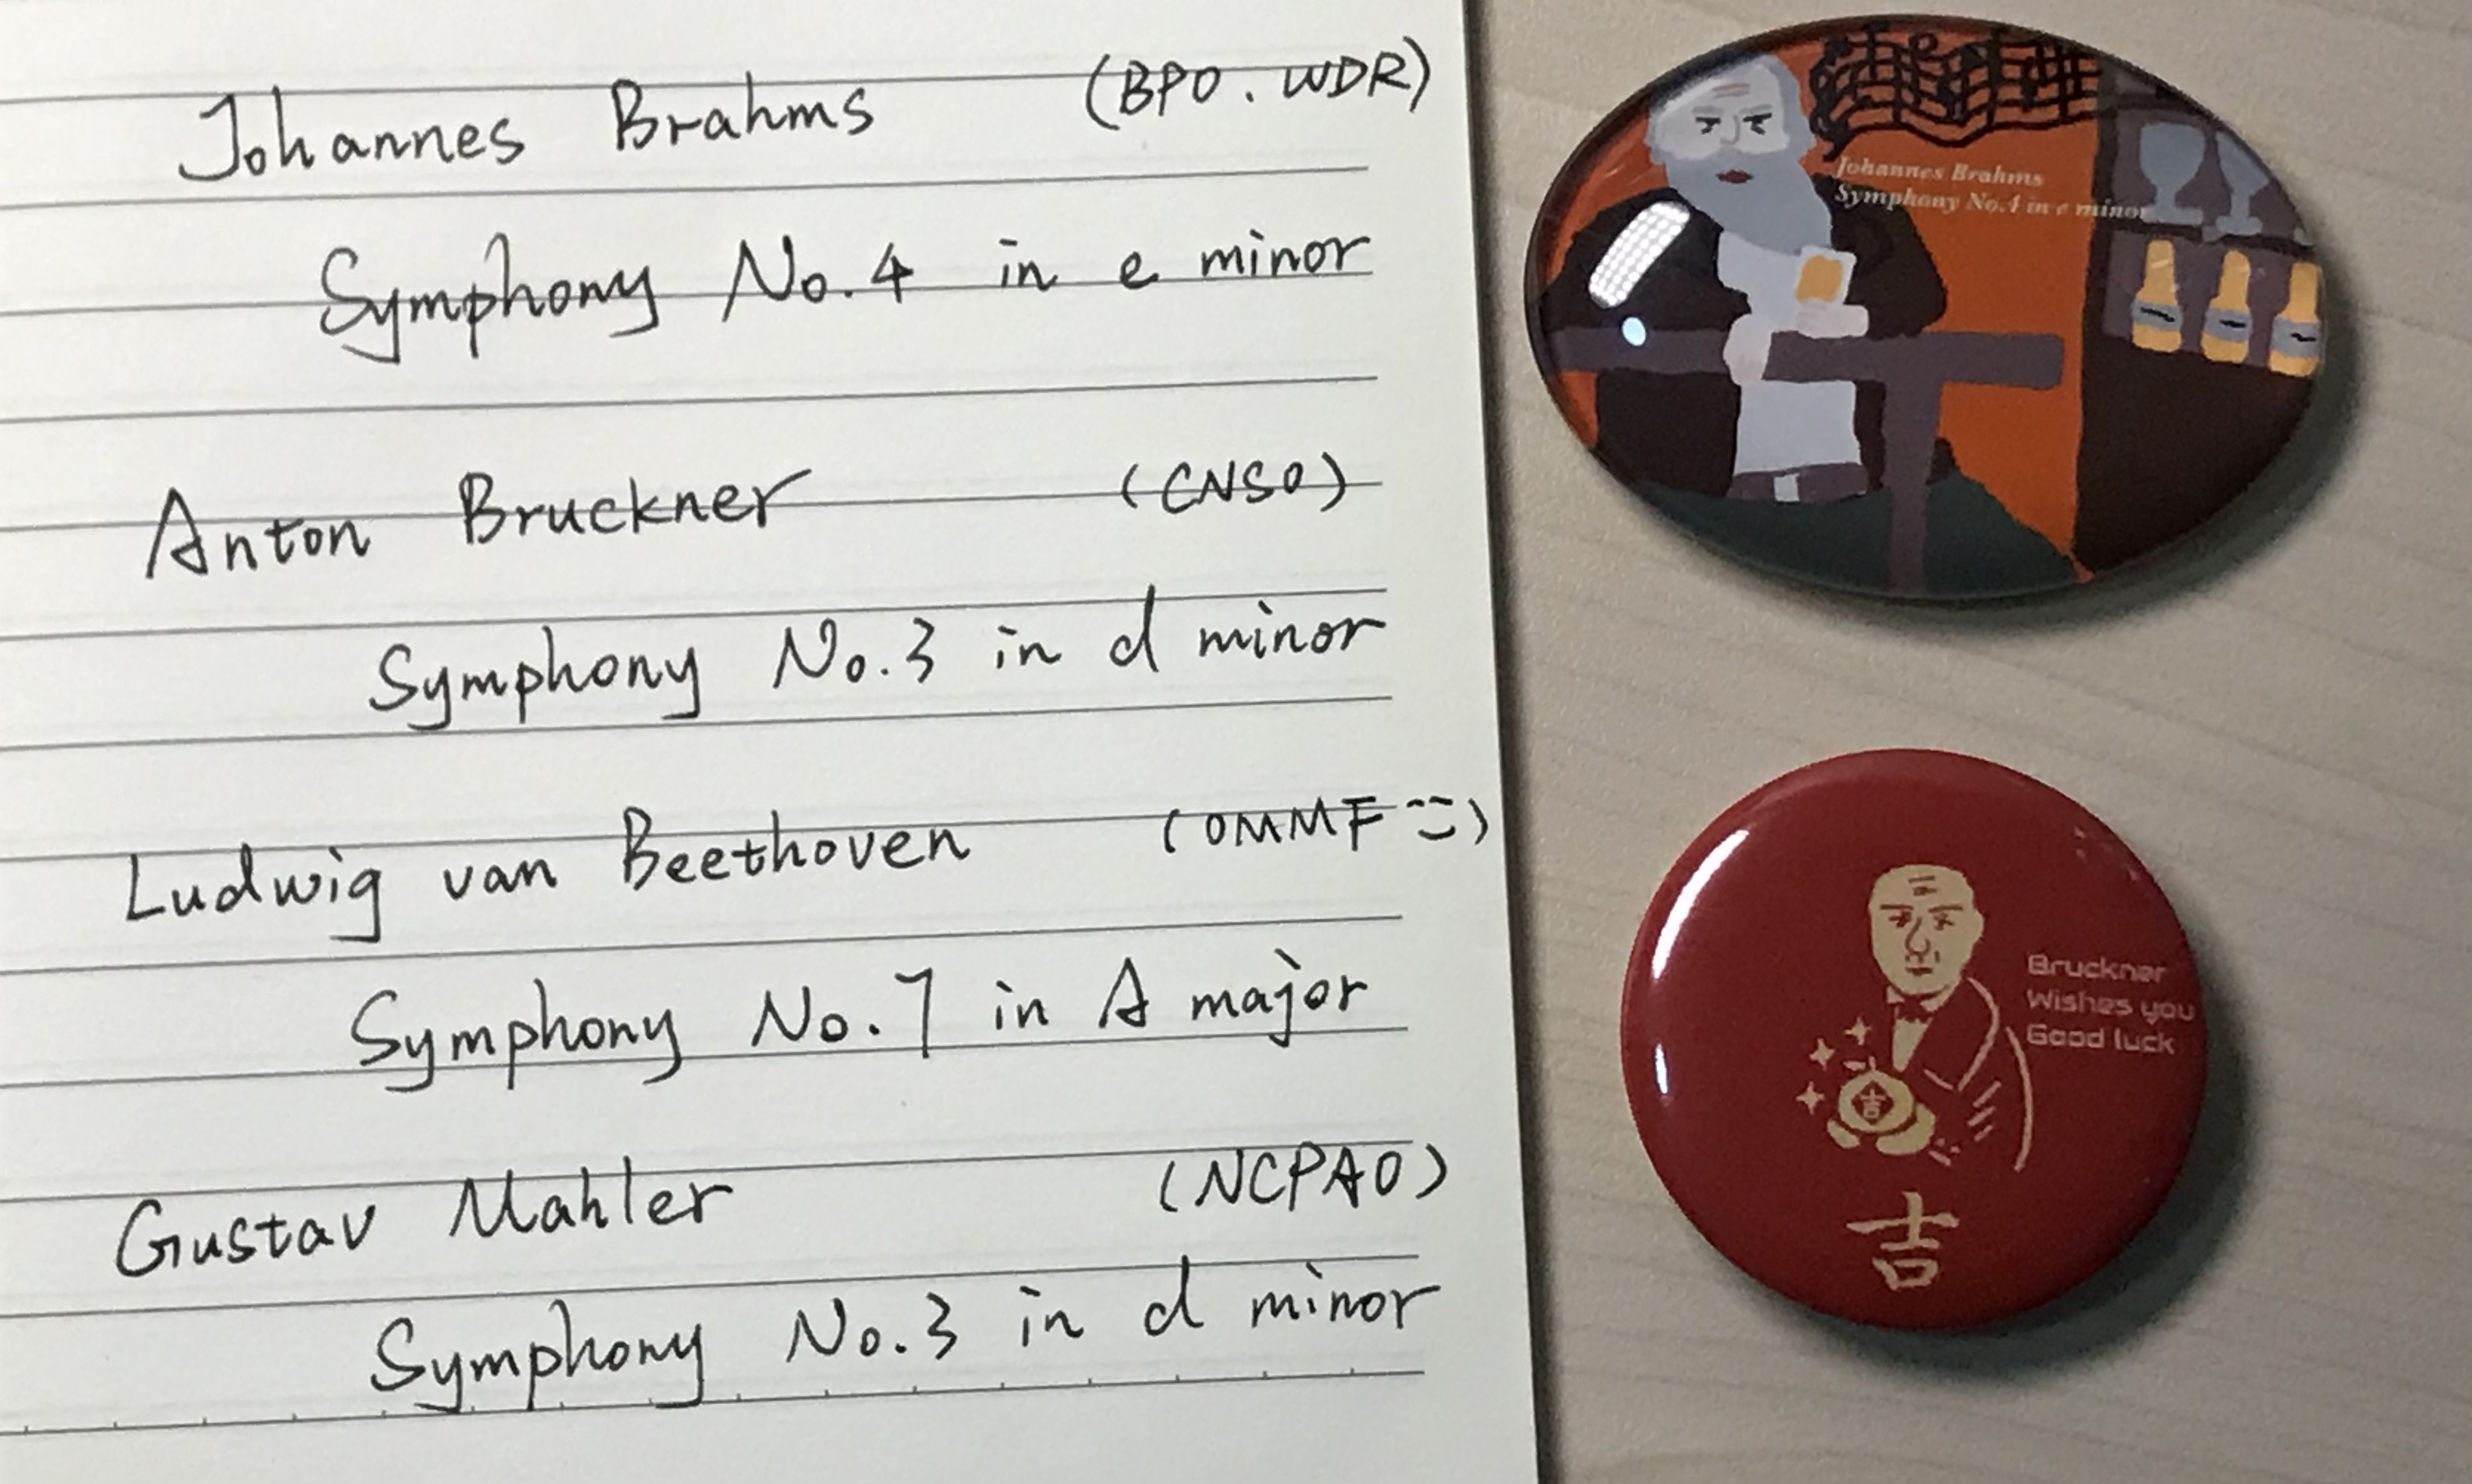 Johannes Brahms (BPO. WDR)
Symphony No.4 in e minor
Anton Bruckner (CNSO)
Symphony No.3 in d minor
Ludwig van Beethoven (OMMF :))
Symphony No.7 in A major
Gustav Mahler (NCPAO)
Symphony No.3 in d minor
Johannes Brahms
Symphony No.4 in e minor
Bruckner
Wishes you
Good luck
吉
吉